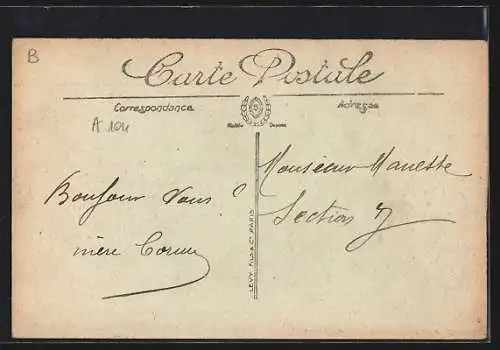 B
Carte Postale
Correspondance
Adresse
A 104
Modèle Déposé
Bonjour Vous
mère
Monsieur Manesse
Section 7
LEVY FILS & Cie PARIS